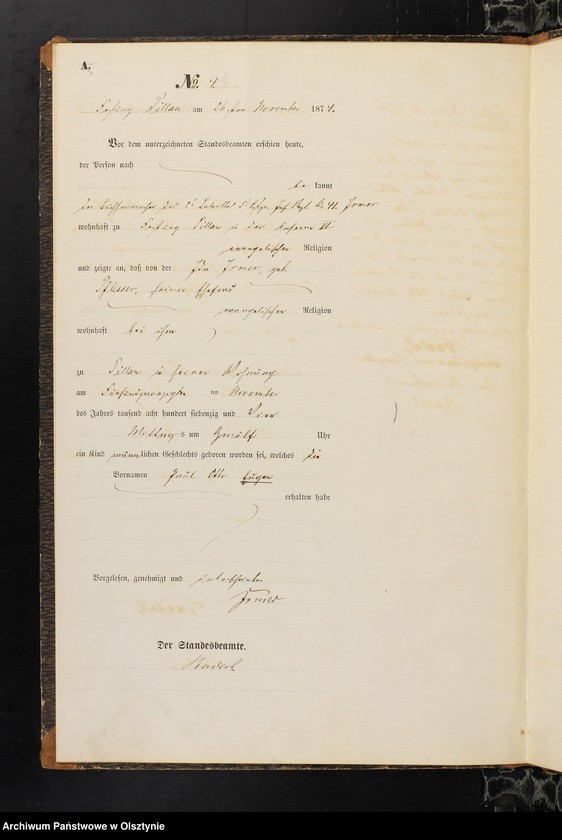 A.
No. 4.
Festung Pillau am 26ten November 1874.
Vor dem unterzeichneten Standesbeamten erschien heute,
der Person nach
be kannt
der Büchsenmacher des Irmer
wohnhaft zu Festung Pillau in der Kaserne VI
evangelischer Religion
und zeigte an, daß von der Irmer, geb.
seiner Ehefrau
evangelischer Religion
wohnhaft bei ihm
zu Pillau in seiner Wohnung
am Fünfundzwanzigsten ten November
des Jahres tausend acht hundert siebenzig und Vier
Mittags um Zwölf Uhr
ein Kind männlichen Geschlechts geboren worden sei, welches die
Vornamen Paul Otto Eugen
erhalten habe
Vorgelesen, genehmigt und unterschrieben
Irmer
Der Standesbeamte.
Archiwum Państwowe w Olsztynie